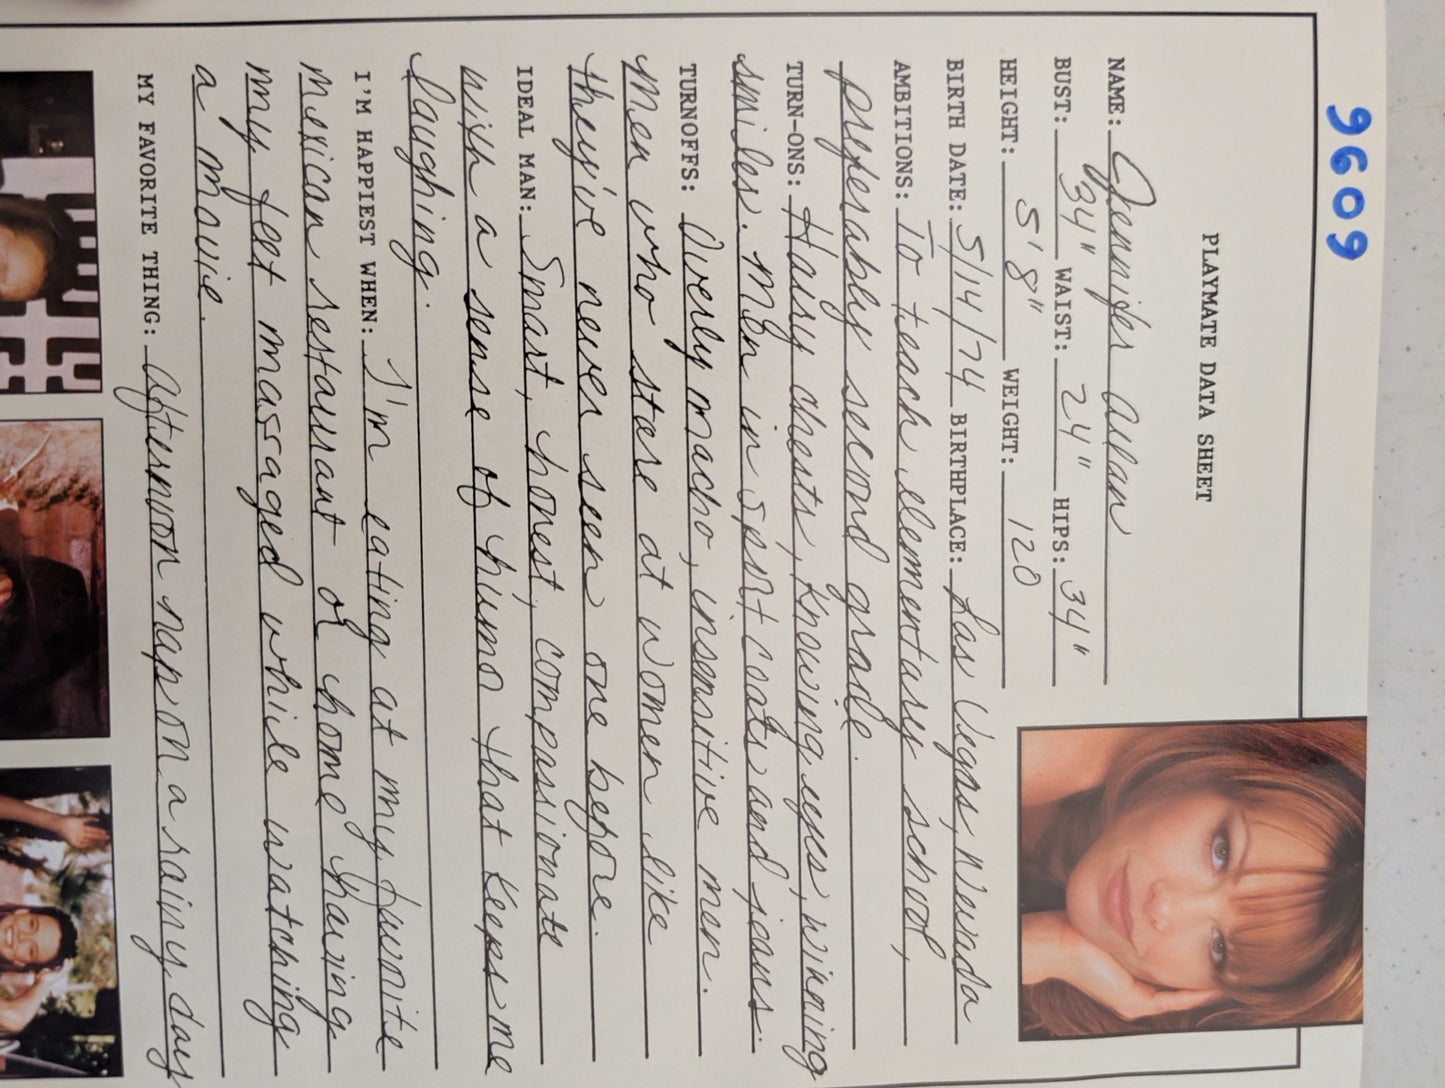 9609
PLAYMATE DATA SHEET
NAME: Jennifer Allan
BUST: 34" WAIST: 24" HIPS: 34"
HEIGHT: 5' 8" WEIGHT: 120
BIRTH DATE: 5/14/74 BIRTHPLACE: Las Vegas, Nevada
AMBITIONS: To teach elementary school,
preferably second grade.
TURN-ONS: Hairy chests, knowing eyes, winning
smiles. Men in sport coats and jeans.
TURNOFFS: Overly macho, insensitive men.
Men who stare at women like
they've never seen one before.
IDEAL MAN: Smart, honest, compassionate
with a sense of humor that keeps me
laughing.
I'M HAPPIEST WHEN: I'm eating at my favorite
Mexican restaurant or home having
my feet massaged while watching
a movie.
MY FAVORITE THING: Afternoon naps on a rainy day